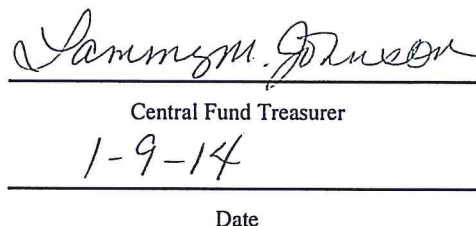 Tammy M. Johnson
Central Fund Treasurer
1-9-14
Date